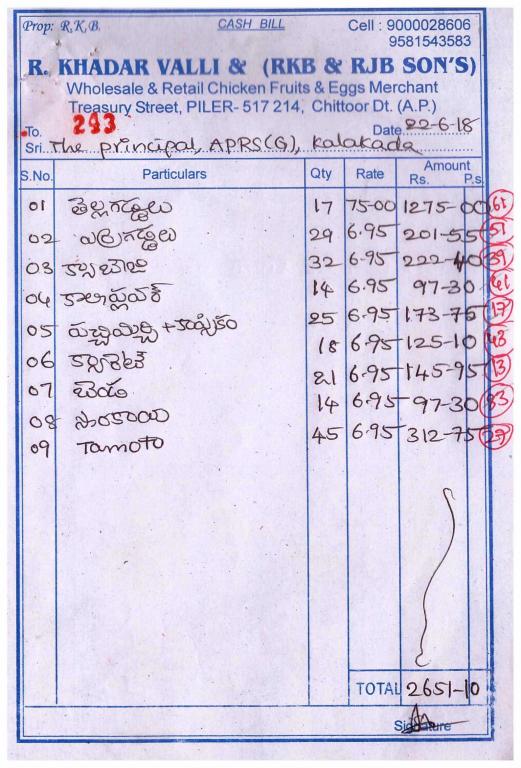 Prop: R,K,B. CASH BILL Cell : 9000028606
9581543583
R. KHADAR VALLI & (RKB & RJB SON'S)
Wholesale & Retail Chicken Fruits & Eggs Merchant
Treasury Street, PILER- 517 214, Chittoor Dt. (A.P.)
To. 293 Date 22-6-18
Sri. The principal, APRS(G), Kalakada
S.No. Particulars Qty Rate Amount
Rs. P.s.
01 తెల్లగడ్డలు 17 75-00 1275-00 61
02 ఎర్రగడ్డలు 29 6.95 201-55 51
03 క్యాబేజి 32 6.95 222-40 39
04 కాలీఫ్లవర్ 14 6.95 97-30 41
05 పచ్చిమిర్చి + కాప్సికం 25 6.95 173-75 17
06 క్యారెట్ 18 6.95 125-10 48
07 బెండ 21 6.95 145-95 13
08 సొరకాయ 14 6.95 97-30 83
09 Tamoto 45 6.95 312-75 27
TOTAL 2651-10
Signature